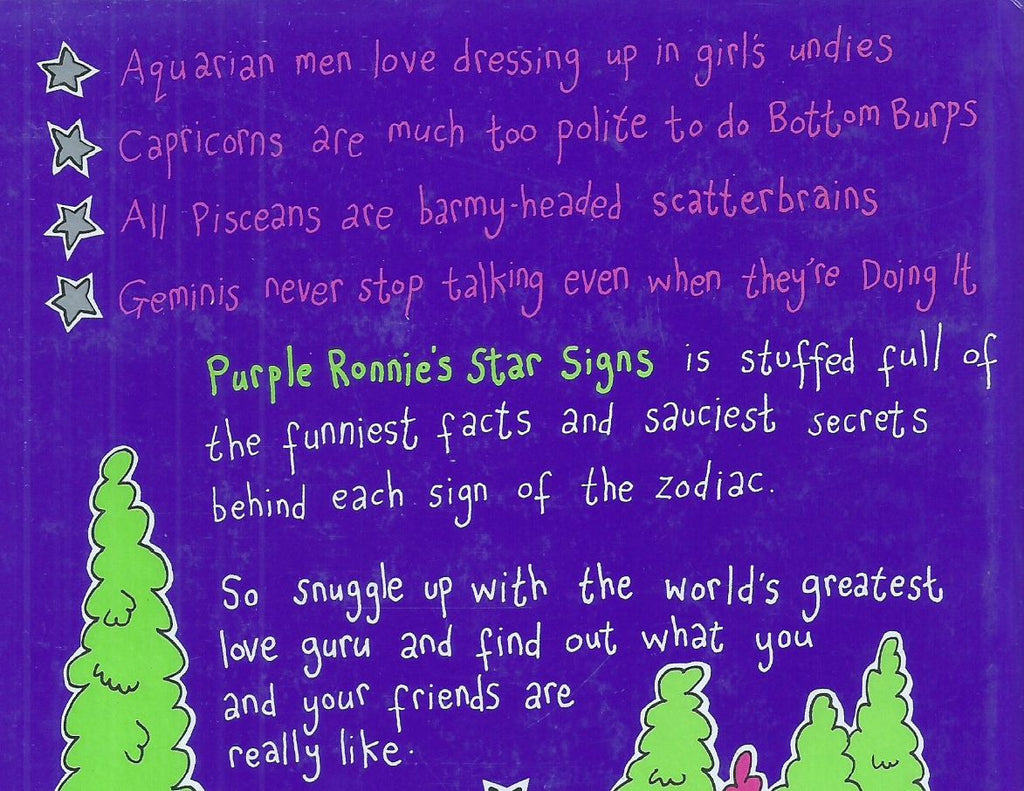 Aquarian men love dressing up in girl's undies
Capricorns are much too polite to do Bottom Burps
All Pisceans are barmy-headed scatterbrains
Geminis never stop talking even when they're Doing It
Purple Ronnie's Star Signs is stuffed full of
the funniest facts and sauciest secrets
behind each sign of the zodiac.
So snuggle up with the world's greatest
love guru and find out what you
and your friends are
really like.